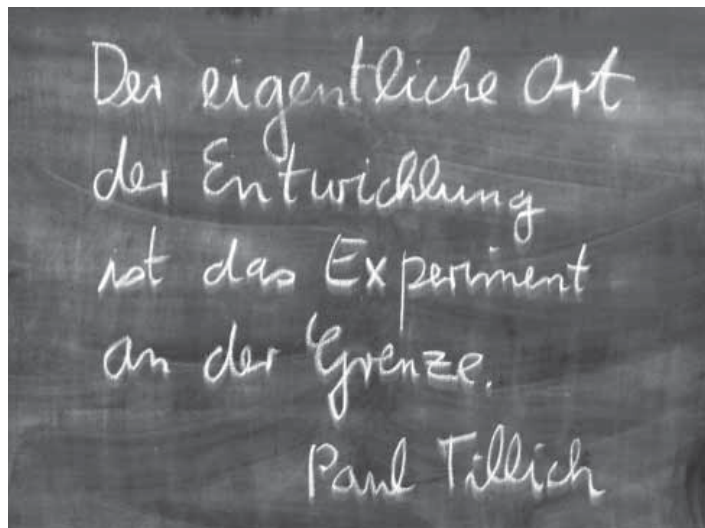 Der eigentliche Ort
der Entwicklung
ist das Experiment
an der Grenze.
Paul Tillich